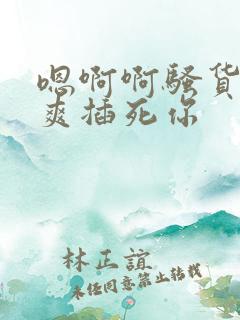 嗯啊啊骚货
爽插死你
林正谊
未经同意禁止转载